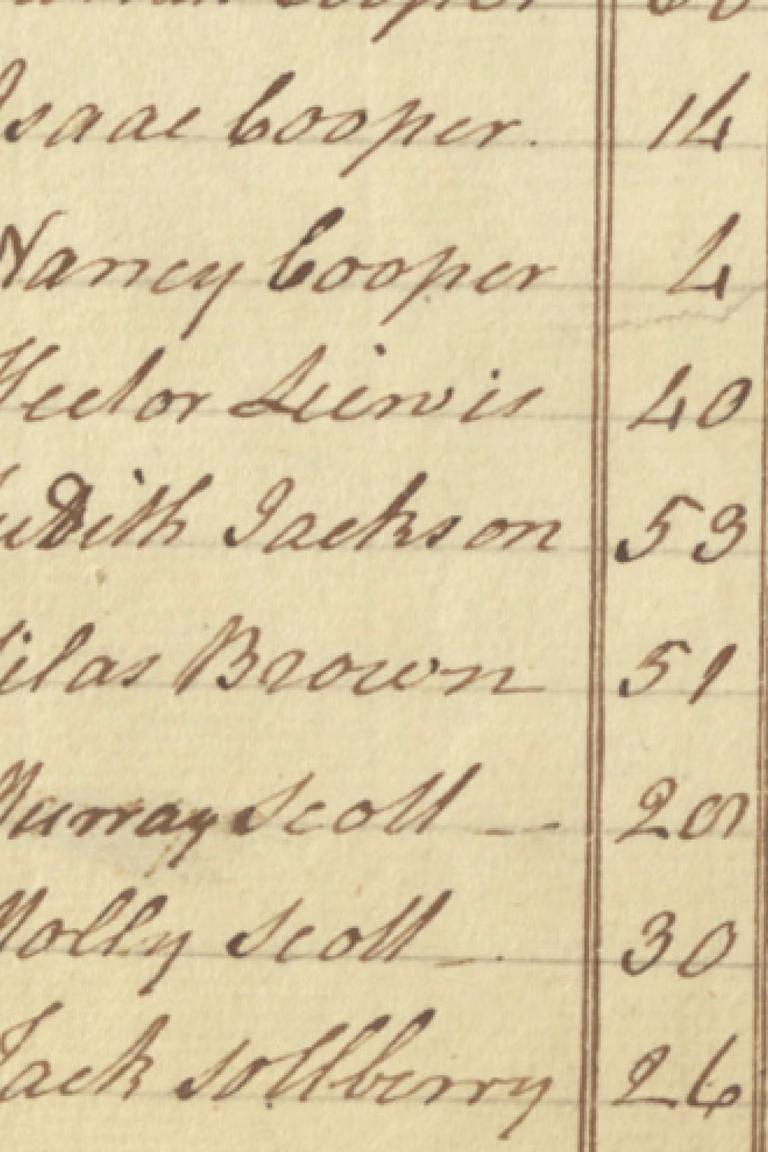 Cooper
Isaac Cooper. 14
Nancy Cooper 4
Hector Liewis 40
Judith Jackson 53
Silas Brown 51
Murray Scott 
Molly Scott 30
Jack sollberry 26